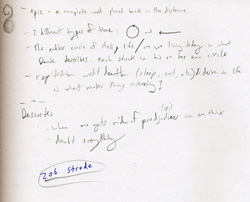 - epic - a complete world placed back in the distance
- 2 different types of time: and
- The outer circle of Hell, life / we are living today is what
Dante describes. each stuck in his or her own circle
- repetition until death (sleep, eat, etc) desire in life
is what makes things interesting?
Descartes
- when one gets rid of prejudices can one think
- doubt everything
206 strode